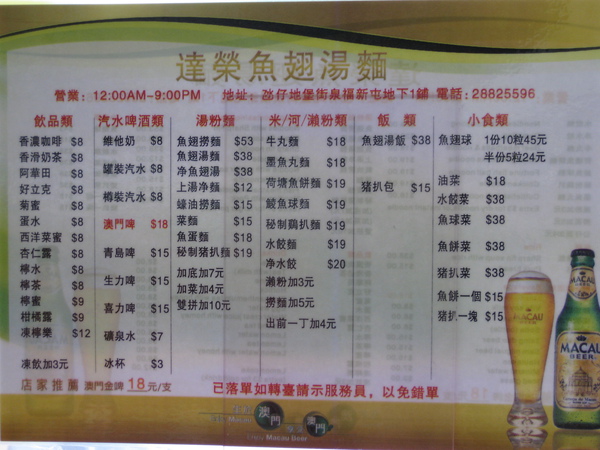 達榮魚翅湯麵
營業：12:00AM-9:00PM 地址：氹仔地堡街泉福新屯地下1鋪 電話:28825596
飲品類
香濃咖啡 $8
香滑奶茶 $8
阿華田 $8
好立克 $8
菊蜜 $8
蛋水 $8
西洋菜蜜 $8
杏仁露 $8
檸水 $8
檸茶 $8
檸蜜 $9
柑橘露 $9
凍檸樂 $12
凍飲加3元
汽水啤酒類
維他奶 $8
罐裝汽水 $8
樽裝汽水 $8
澳門啤 $18
青島啤 $15
生力啤 $15
喜力啤 $15
礦泉水 $7
冰杯 $3
湯粉麵
魚翅撈麵 $53
魚翅湯麵 $38
净魚翅湯 $38
上湯净麵 $12
蠔油撈麵 $15
菜麵 $15
魚蛋麵 $18
秘制豬扒麵 $19
加底加7元
加菜加4元
雙拼加10元
米/河/瀨粉類
牛丸麵 $18
墨魚丸麵 $18
荷塘魚餅麵 $19
鯪魚球麵 $19
秘制鷄扒麵 $19
水餃麵 $19
净水餃 $20
瀨粉加3元
撈麵加5元
出前一丁加4元
飯 類
魚翅湯飯 $38
豬扒包 $15
小食類
魚翅球 1份10粒45元
半份5粒24元
油菜 $18
水餃菜 $38
魚球菜 $38
魚餅菜 $38
豬扒菜 $38
魚餅一個 $15
豬扒一塊 $15
店家推薦 澳門金啤 18元/支
已落單如轉臺請示服務員，以免錯單
澳門
澳門
Enjoy Macau Beer
MACAU
MACAU
BEER